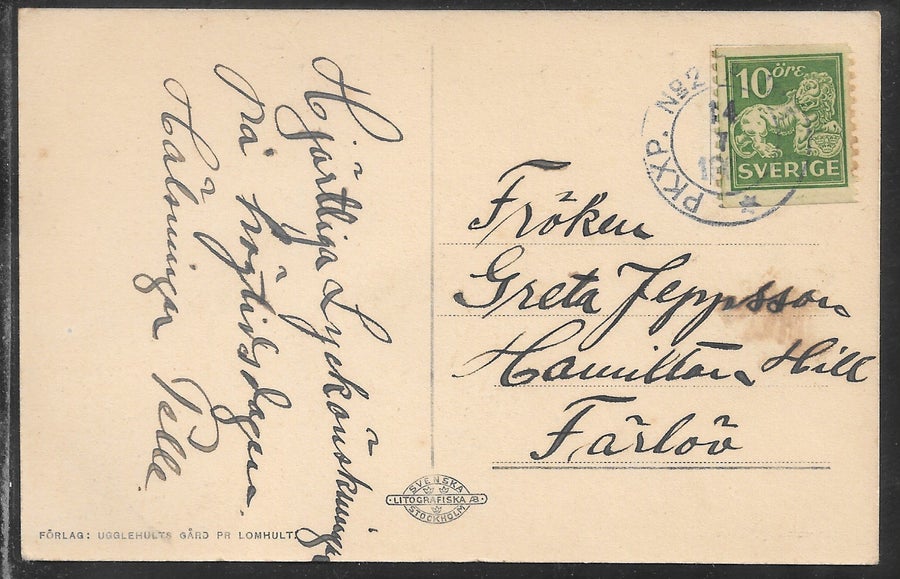 Hjärtliga Lyckönskningar
på högtidsdagen.
Hälsningar Pelle
PKXP. No 2
14
10 öre
SVERIGE
Fröken
Greta Jeppsson
Hamilton Hill
Färlöv
SVENSKA
LITOGRAFISKA AB
STOCKHOLM
FÖRLAG: UGGLEHULTS GÅRD PR LOMHULT